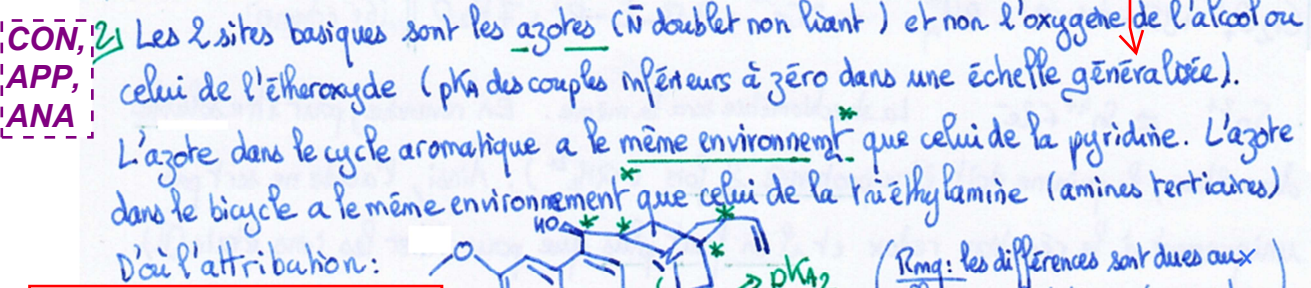 CON,
APP,
ANA
2) Les 2 sites basiques sont les azotes (N doublet non liant) et non l'oxygène de l'alcool ou
celui de l'étheroxyde (pKA des couples inférieurs à zéro dans une échelle généralisée).
L'azote dans le cycle aromatique a le même environnemt que celui de la pyridine. L'azote
dans le bicycle a le même environnement que celui de la triéthylamine (amines tertiaires)
D'où l'attribution:
HO
O
pKA2
(Rmq: les différences sont dues aux